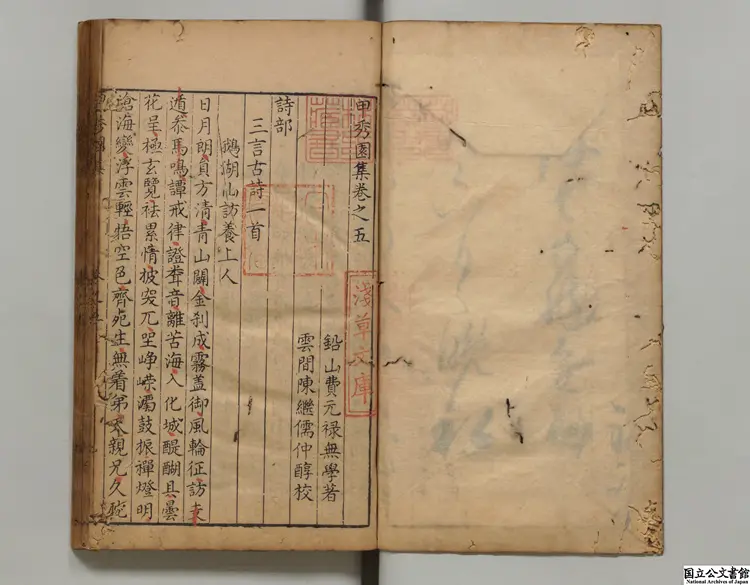 甲秀園集卷之五
鉛山費元祿無學著
雲間陳繼儒仲醇校
詩部
三言古詩一首
鵝湖山訪養上人
日月朗貝方清青山闢金刹成霧蓋御風輪征訪支
遁參馬鳴譚戒律證聲音離苦海入化城醍醐具曇
花呈極玄覽祛累情披突兀坐崢嶸濁鼓振禪燈明
滄海變浮雲輕悟空色齊死生無着弟天親兄久
淺草文庫
国立公文書館
National Archives of Japan